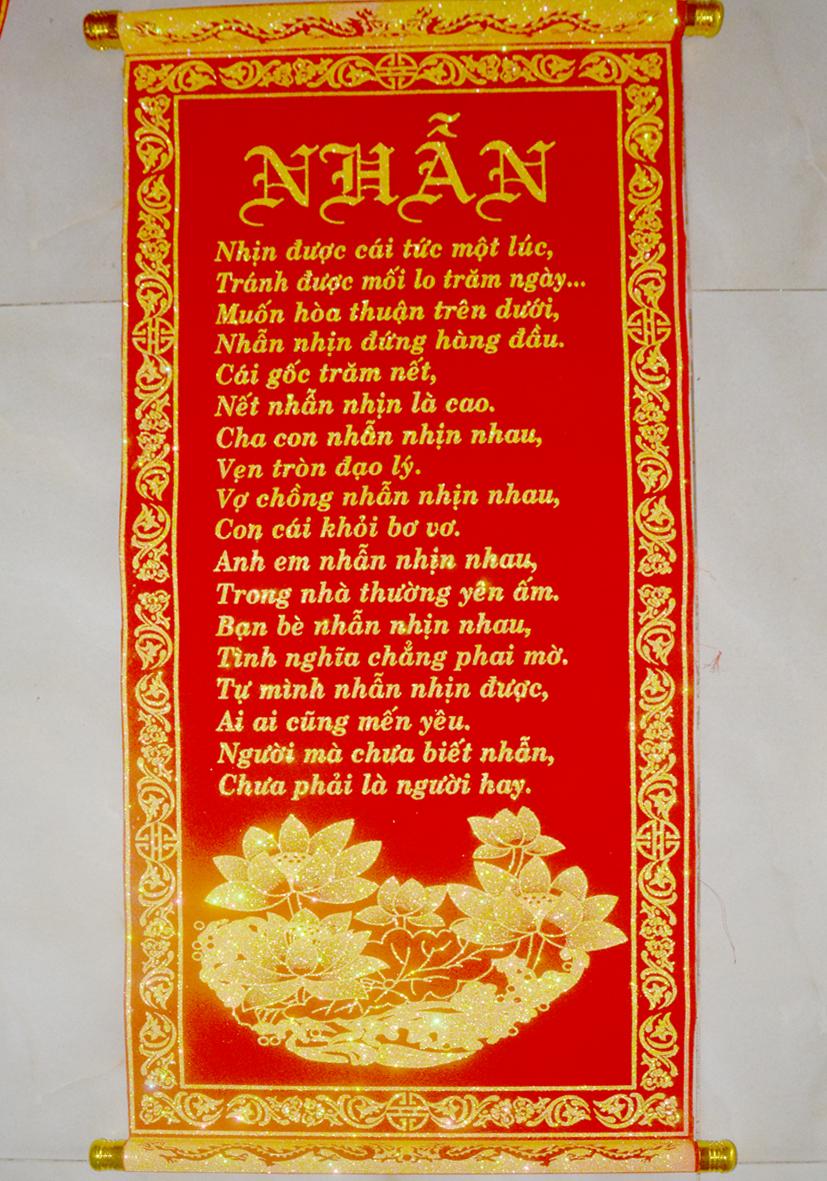 NHẪN
Nhịn được cái tức một lúc,
Tránh được mối lo trăm ngày...
Muốn hòa thuận trên dưới,
Nhẫn nhịn đứng hàng đầu.
Cái gốc trăm nết,
Nết nhẫn nhịn là cao.
Cha con nhẫn nhịn nhau,
Vẹn tròn đạo lý.
Vợ chồng nhẫn nhịn nhau,
Con cái khỏi bơ vơ.
Anh em nhẫn nhịn nhau,
Trong nhà thường yên ấm.
Bạn bè nhẫn nhịn nhau,
Tình nghĩa chẳng phai mờ.
Tự mình nhẫn nhịn được,
Ai ai cũng mến yêu.
Người mà chưa biết nhẫn,
Chưa phải là người hay.